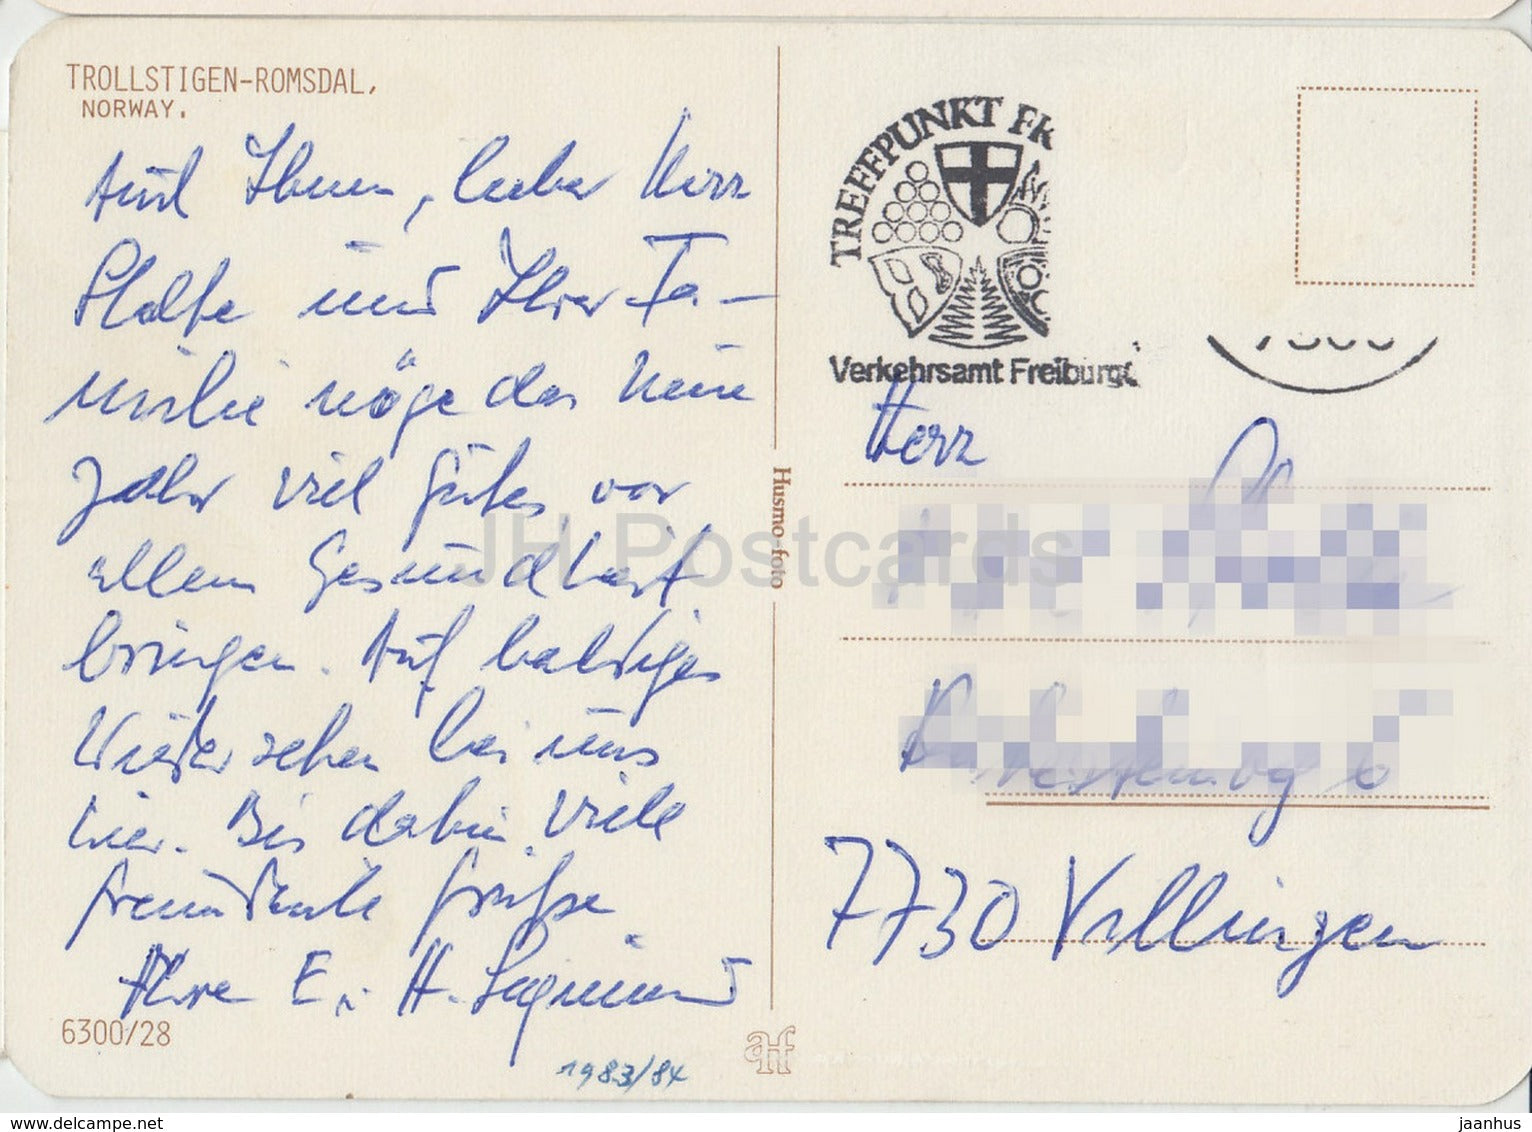 TROLLSTIGEN-ROMSDAL,
NORWAY.
Auch Ihnen, lieber Herr
und Ihrer Fa-
milie möge das Neue
Jahr viel Gutes vor
allem Gesundheit
bringen. Auf baldiges
Wiedersehen bei uns
hier. Bis dahin viele
freundliche Grüße
Ihre E. u. H. Siegmund
6300/28
1983/84
Husmo-foto
TREFFPUNKT FR
Verkehrsamt Freiburg
Herr
7730 Villingen
JH Postcards
www.delcampe.net
jaanhus